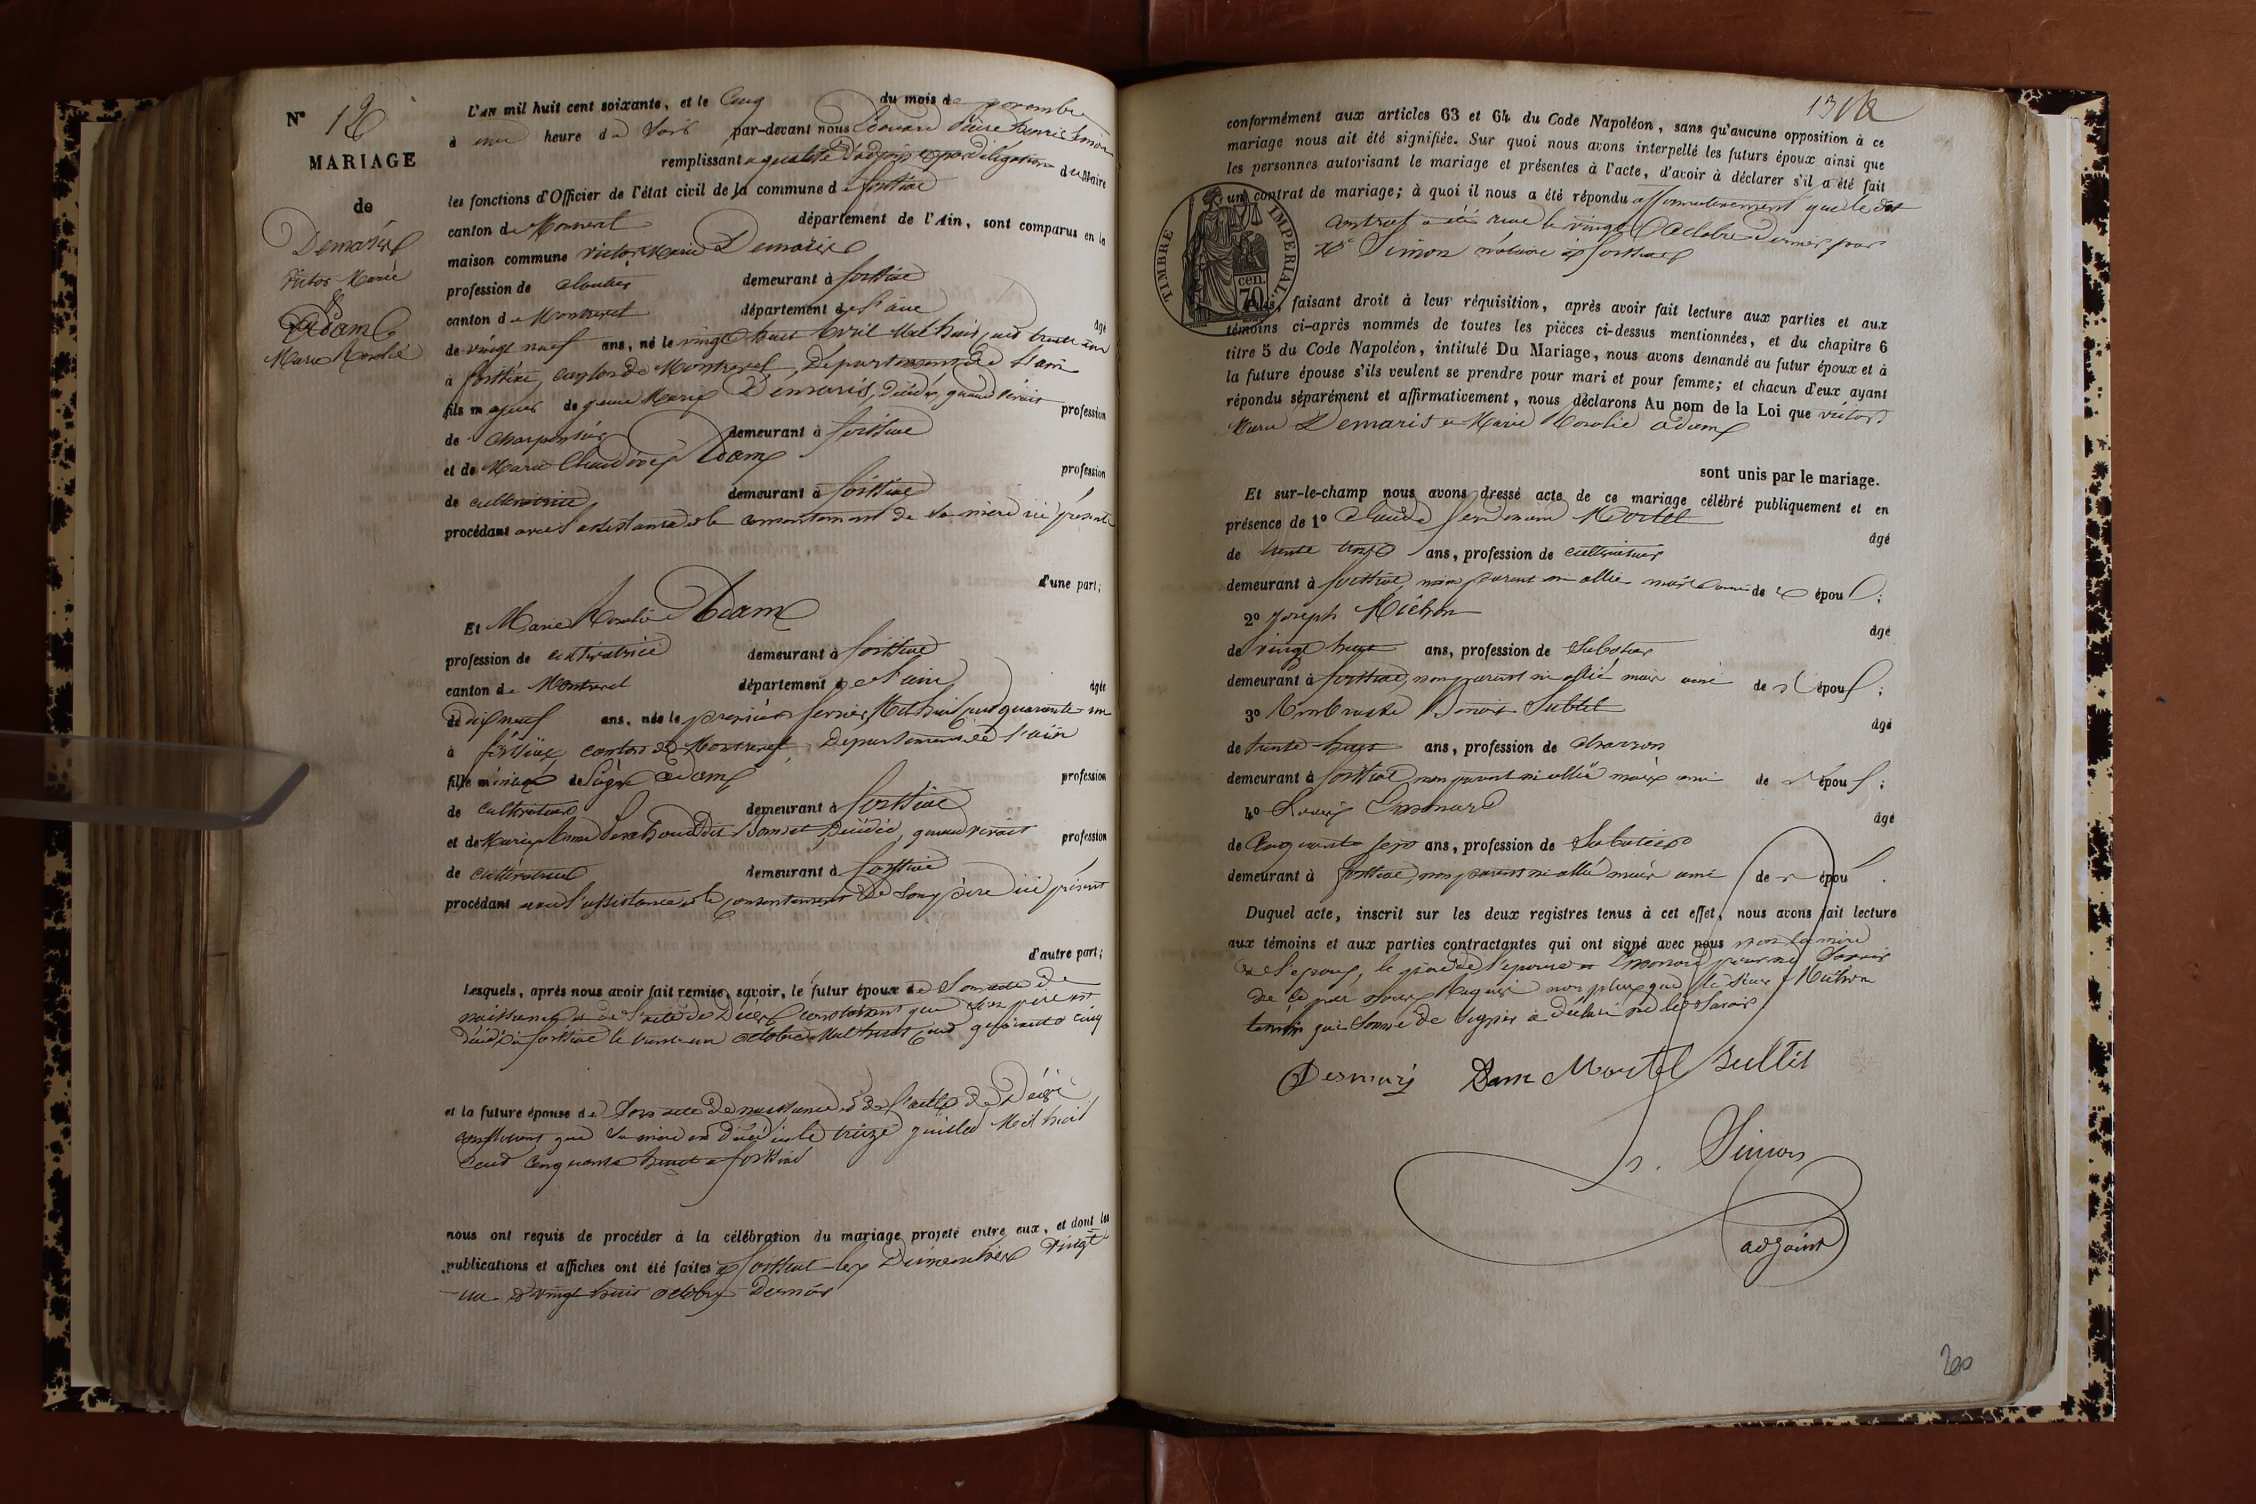 N° 12
MARIAGE
de
Demaris
Victor Marie
&
Adam
Marie Rosalie
L'AN mil huit cent soixante, et le Cinq du mois de novembre
à une heure du Soir par-devant nous Edouard Pierre Henri Simon
remplissant en qualité d'adjoint et par délégation du Maire
les fonctions d'Officier de l'état civil de la commune de foissiat
canton de Montrevel département de l'Ain, sont comparus en la
maison commune Victor Marie Demaris
profession de demeurant à foissiat
canton de Montrevel département de l'ain âgé
de vingt neuf ans, né le vingt huit Avril Mil huit cent trente un
à foissiat, canton de Montrevel, Département de l'ain
fils majeur de Marie Demaris, Décédé, quand vivait profession
de Charpentier demeurant à foissiat
et de Marie Claudine Adam profession
de cultivatrice demeurant à foissiat
procédant avec l'assistance et le consentement de sa mère ici présente
d'une part;
Et Marie Rosalie Adam
profession de cultivatrice demeurant à foissiat
canton de Montrevel département de l'ain âgée
de dix neuf ans, née le premier fevrier Mil huit cent quarante un
à foissiat canton de Montrevel, Département de l'ain
fille mineure de Adam profession
de cultivateur demeurant à foissiat
et de Marie Anne dit Décédée, quand vivait profession
de cultivatrice demeurant à foissiat
procédant avec l'assistance et le consentement de son père ici présent
d'autre part;
Lesquels, après nous avoir fait remise, savoir, le futur époux de Son acte de
naissance et de l'acte de Décès constatant que son père est
décédé à foissiat le vingt un octobre Mil huit cent quarante cinq
et la future épouse de Son acte de naissance et de l'acte de Décès
constatant que sa mère est décédée le treize juillet Mil huit
cent cinquante huit à foissiat
nous ont requis de procéder à la célébration du mariage projeté entre eux, et dont les
publications et affiches ont été faites à foissiat les Dimanches vingt
un & vingt huit octobre Dernier
conformément aux articles 63 et 64 du Code Napoléon, sans qu'aucune opposition à ce
mariage nous ait été signifiée. Sur quoi nous avons interpellé les futurs époux ainsi que
les personnes autorisant le mariage et présentes à l'acte, d'avoir à déclarer s'il a été fait
un contrat de mariage; à quoi il nous a été répondu affirmativement que le dit
contrat a été reçu le vingt Octobre dernier par
Me Simon notaire à foissiat
TIMBRE IMPERIAL
70 cen.
Nous, faisant droit à leur réquisition, après avoir fait lecture aux parties et aux
témoins ci-après nommés de toutes les pièces ci-dessus mentionnées, et du chapitre 6
titre 5 du Code Napoléon, intitulé Du Mariage, nous avons demandé au futur époux et à
la future épouse s'ils veulent se prendre pour mari et pour femme; et chacun d'eux ayant
répondu séparément et affirmativement, nous déclarons Au nom de la Loi que Victor
Marie Demaris et Marie Rosalie Adam
sont unis par le mariage.
Et sur-le-champ nous avons dressé acte de ce mariage célébré publiquement et en
présence de 1° Claude Ferdinand Mortel âgé
de trente trois ans, profession de cultivateur
demeurant à foissiat, non parent ni allié mais ami de l'époux;
2° Joseph Michon âgé
de vingt huit ans, profession de Sabotier
demeurant à foissiat, non parent ni allié mais ami de l'époux;
3° Benoit Sublet âgé
de trente huit ans, profession de charron
demeurant à foissiat, non parent ni allié mais ami de l'époux;
4° Louis âgé
de Cinquante sept ans, profession de Sabotier
demeurant à foissiat, non parent ni allié mais ami de l'époux.
Duquel acte, inscrit sur les deux registres tenus à cet effet, nous avons fait lecture
aux témoins et aux parties contractantes qui ont signé avec nous non la mère
de l'époux, le père de l'épouse et pour ne Savoir
de ce par nous Requis non plus que le Sieur Michon
témoin qui Sommé de Signer a déclaré ne le Savoir
Desmaris Adam Mortel Sublet
Simon
adjoint
200